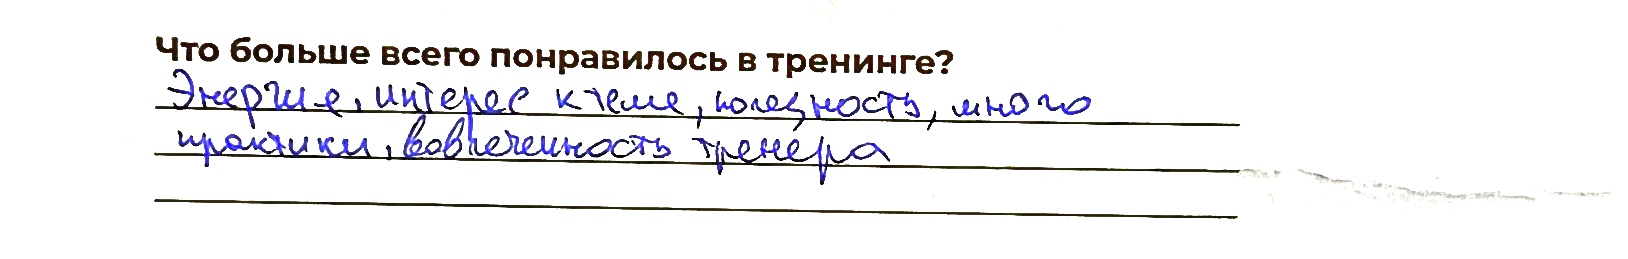 Что больше всего понравилось в тренинге?
Энергия, интерес к теме, полезность, много
практики, вовлеченность тренера